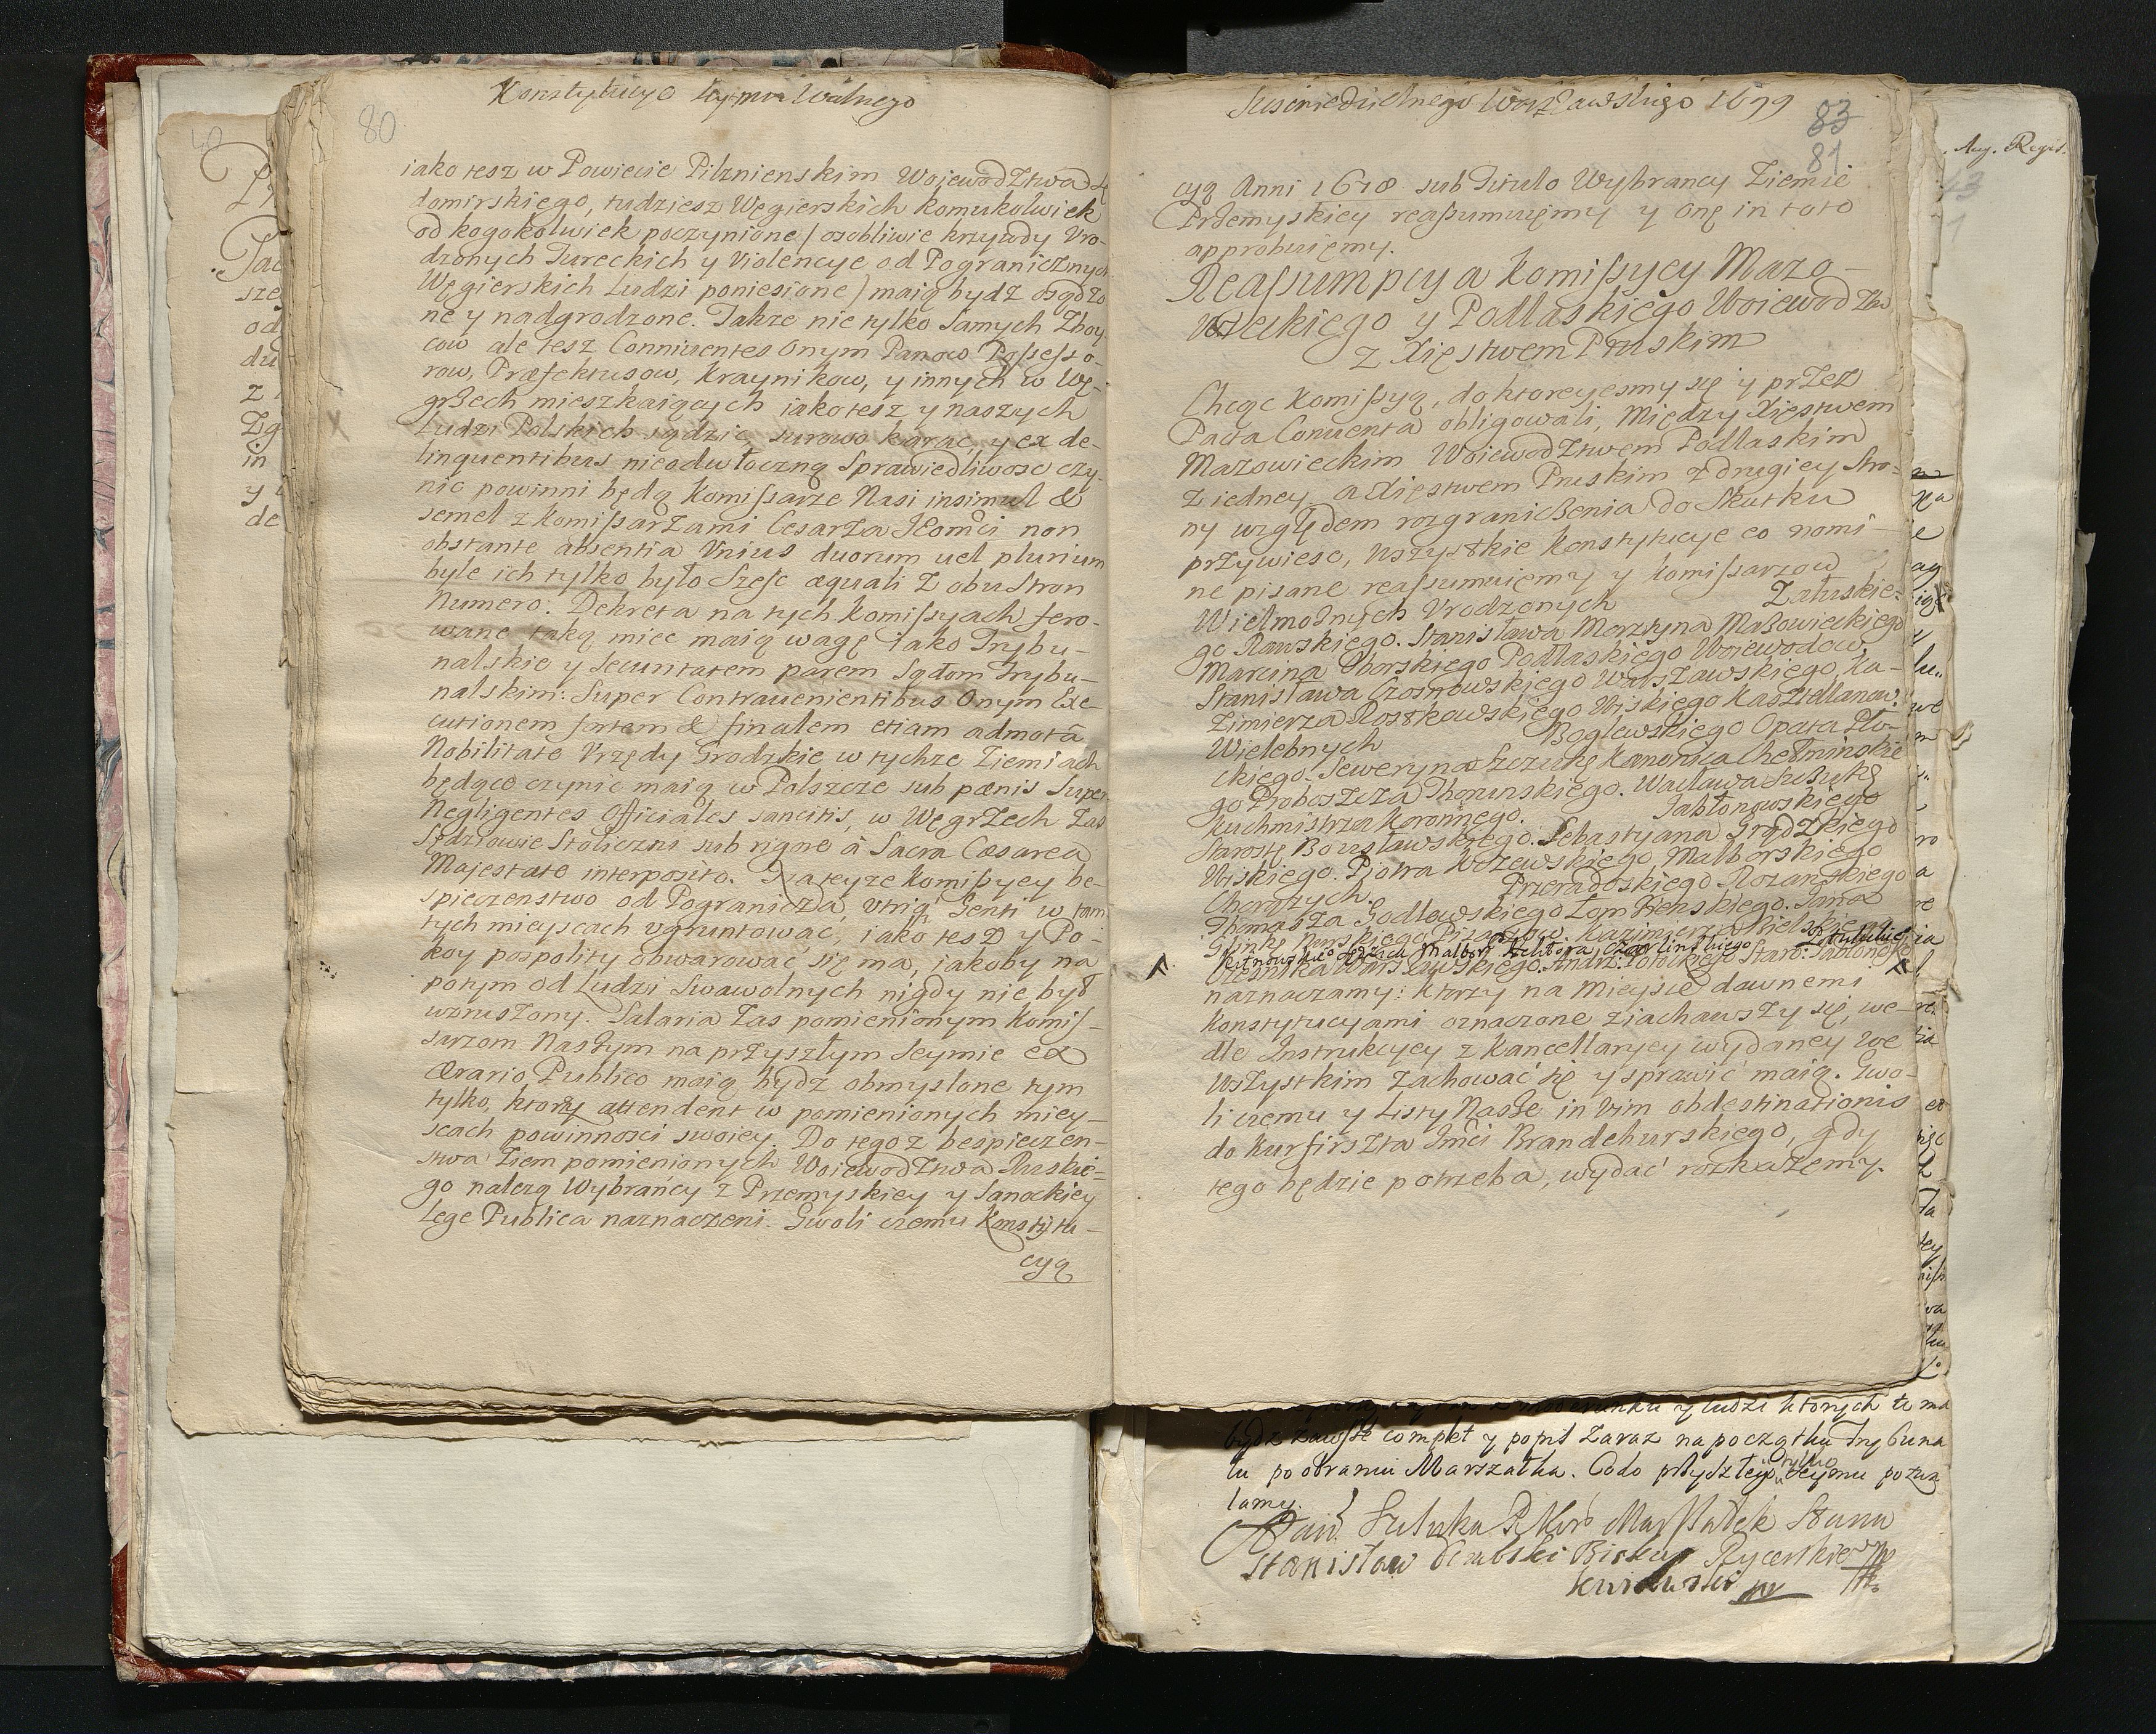 80
Konstytucye Seymu Walnego
iako tesz w Powiecie Pilznienskim Wojewodztwa
domirskiego, tudziesz Węgierskich komukolwiek
od kogokolwiek poczynione / osobliwie krzywdy Vro-
dzonych Tureckich y Violencye od Pogranicznych
Węgierskich Ludzi poniesione / maią bydz osądzo
ne y nadgrodzone. Takze nie tylko Samych Zboy
cow ale tesz Conniuentes Onym Panow Possesso-
row, Præfektusow, Kraynikow, y innych w Wę-
grzech mieszkaiących iako tesz y naszych
Ludzi Polskich sądzic, surowo karac, y ex de-
linquentibus nieodwłoczną Sprawiedliwosc czy-
nic powinni będą Komissarze Nasi insimul &
semel z Komissarzami Cesarza JEomci non
obstante absentia Vnius duorum uel plurium
byle ich tylko było Szesc æquali z obu Stron
Numero. Dekreta na tych Komissyach fero-
wane taką miec maią wagę iako Trybu-
nalskie y securitatem parem Sądom Trybu-
nalskim: Super Contrauenientibus Onym Exe-
cutionem fortem & finalem etiam admota
Nobilitate Vrzędy Grodzkie w tychze Ziemiach
będące czynic maią w Polszcze sub pœnis Super
Negligentes Officiales sancitis, w Węgrzech Zas
Sędziowie Stoliczni sub rigore à Sacra Cæsarea
Majestate interposito. Na teyze Komissyey be-
spieczenstwo od Pogranicza, vtriq Genti w tam
tych mieyscach vgruntować, iako tesz y Po-
koy pospolity obwarować się ma, jakoby na
potym od Ludzi Swawolnych nigdy nie był
wzruszony. Salaria Zas pomienionym Komis-
sarzom Naszym na przyszłym Seymie ex
Ærario Publico maią bydz obmyslone tym
tylko, ktorzy attendent w pomienionych miey-
scach powinnosci swoiey. Do tegoz bespieczen-
stwa Ziem pomienionych Woiewodztwa Ruskie-
go nalezą Wybrańcy z Przemyskiey y Sanockiey
Lege Publica naznaczeni. Gwoli czemu Konstytu-
cyą
Szescniedzielnego Warszawskiego 1699
83
81
cyą Anni 1618 sub Titulo Wybrancy Ziemie
Przemyskiey reassumuięmy y Onę in toto
approbuięmy.
Reassumpcya Komissyey Mazo-
wieckiego y Podlaskiego Woiewodztw
z Xięstwem Pruskim
Chcąc Komissyą, do ktoreyesmy się y przez
Pacta Conuenta obligowali, Między Xięstwem
Mazowieckim Woiewodztwem Podlaskim
z iedney a Xięstwem Pruskim z drugiey Stro-
ny względem rozgraniczenia do Skutku
przywiesc, wszystkie Konstytucye eo nomi-
ne pisane reassumuiemy y Komissarzow
Wielmoznych Vrodzonych Załuskie-
go Rawskiego. Stanisława Morsztyna Mazowieckiego
Marcina Oborskiego Podlaskiego Woiewodow.
Stanisława Czosnowskiego Warszawskiego, Ka-
zimierza Rostkowskiego Wiskiego Kasztellanow.
Wielebnych Boglewskiego Opata Pło-
ckiego. Seweryna Szczukę Kanonica Chełminskie
go Proboszcza Thorunskiego. Wacława Szczukę
Kuchmistrza Koronnego. Jabłonowskiego
Starostę Bogusławskiego. Sebastyana Grądzkiego
Wiskiego. Pjotra Malborskiego
Chorązych. Przeradoskiego Rozanskiego
Thomasza Godlewskiego Łomzienskiego. Jana
naznaczamy: ktorzy na Mieysce dawnemi
Konstytucyami oznaczone ziachawszy się, we-
dle Instrukcyey z Kancellaryey wydaney we
wszystkim Zachować się y sprawić maią. Gwo-
li czemu y Listy Nasze in vim obdestinationis
do Kurfirszta Jmci Brandeburskiego, gdy
tego będzie potrzeba, wydać rozkazemy.
Aug. Regis.
bydz zawsze complet y popis Zaraz na początku Trybuna
łu po obraniu Marszałka. Co do przyszłego tylko Seymu pozwa
lamy.
Stanisław Biskup